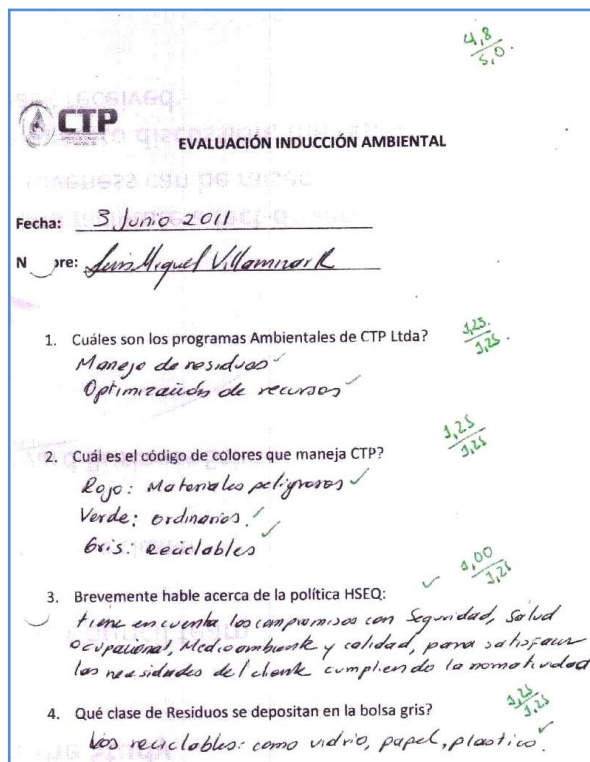 4,8
5,0
CTP
EVALUACIÓN INDUCCIÓN AMBIENTAL
Fecha: 3 Junio 2011
N bre: Luis Miguel Villamizar R
1. Cuáles son los programas Ambientales de CTP Ltda? 1,25 / 1,25
Manejo de residuos
Optimización de recursos
2. Cuál es el código de colores que maneja CTP? 1,25 / 1,25
Rojo: Materiales peligrosos
Verde: ordinarios.
Gris: Reciclables
3. Brevemente hable acerca de la política HSEQ: 1,00 / 1,25
tiene en cuenta los compromisos con Seguridad, Salud
ocupacional, Medio ambiente y calidad, para satisfacer
las necesidades del cliente cumpliendo la normatividad
4. Qué clase de Residuos se depositan en la bolsa gris? 1,25 / 1,25
Los reciclables: como vidrio, papel, plastico.